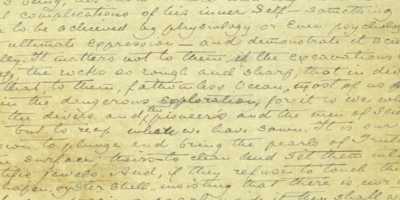 complications of his inner Self — something
to be achieved by physiology or even psycholog
ultimate expression — and demonstrate it soci
ley. It matters not to them if the excavations
the rocks so rough and sharp, that in de
that to them, fathomless ocean, most of us
in the dangerous exploration, for it is we who
the devils and the pioneers and the men of Sci
but to reap what we have sown. It is our
own to plunge and bring the pearls of Truth
surface; theirs to clean and set them in
tific jewels. And, if they refuse to touch the
shapen, oyster shell, insisting that there is
they shall